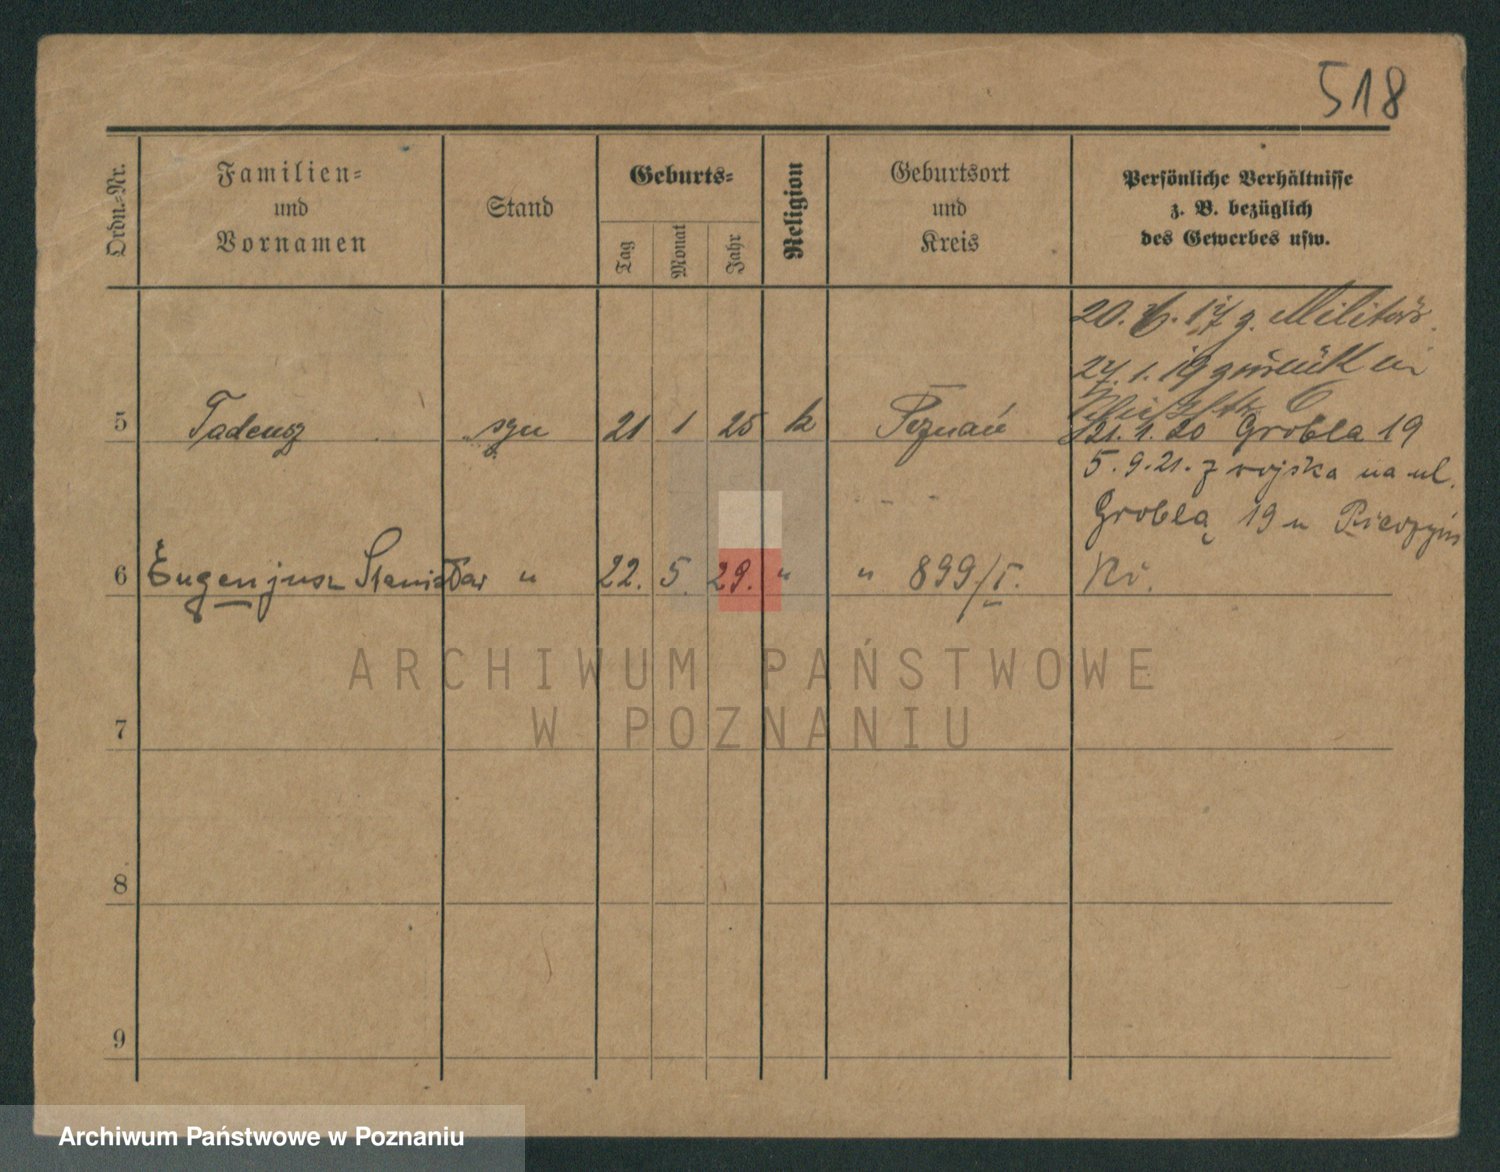 518
Ordn.-Nr.
Familien-
und
Vornamen
Stand
Geburts-
Tag
Monat
Jahr
Religion
Geburtsort
und
Kreis
Persönliche Verhältnisse
z. B. bezüglich
des Gewerbes usw.
20. 6. 17 z. Militär.
27. 1. 19 zurück
5 Tadeusz syn 21 1 25 k Poznań
21. 4. 20 Grobla 19
5. 9. 21. z wojska na ul.
Groblą 19 u
6 Eugenjusz Stanisław " 22. 5. 29. " " 899/I.
7
8
9
ARCHIWUM PAŃSTWOWE
W POZNANIU
Archiwum Państwowe w Poznaniu